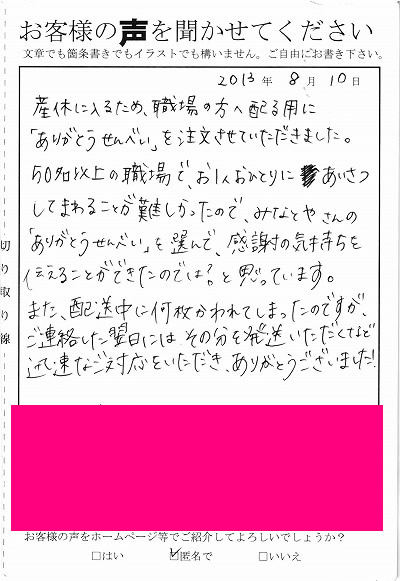 お客様の声を聞かせてください
文章でも箇条書きでもイラストでも構いません。ご自由にお書き下さい。
2013年 8月 10日
産休に入るため、職場の方へ配る用に
「ありがとうせんべい」を注文させていただきました。
50名以上の職場で、お1人おひとりに あいさつ
してまわることが難しかったので、みなとやさんの
「ありがとうせんべい」を選んで、感謝の気持ちを
伝えることができたのでは?と思っています。
また、配送中に何枚かわれてしまったのですが、
ご連絡した翌日にはその分を発送いただくなど
迅速なご対応をいただき、ありがとうございました!
切り取り線
お客様の声をホームページ等でご紹介してよろしいでしょうか?
□はい ☑匿名で □いいえ